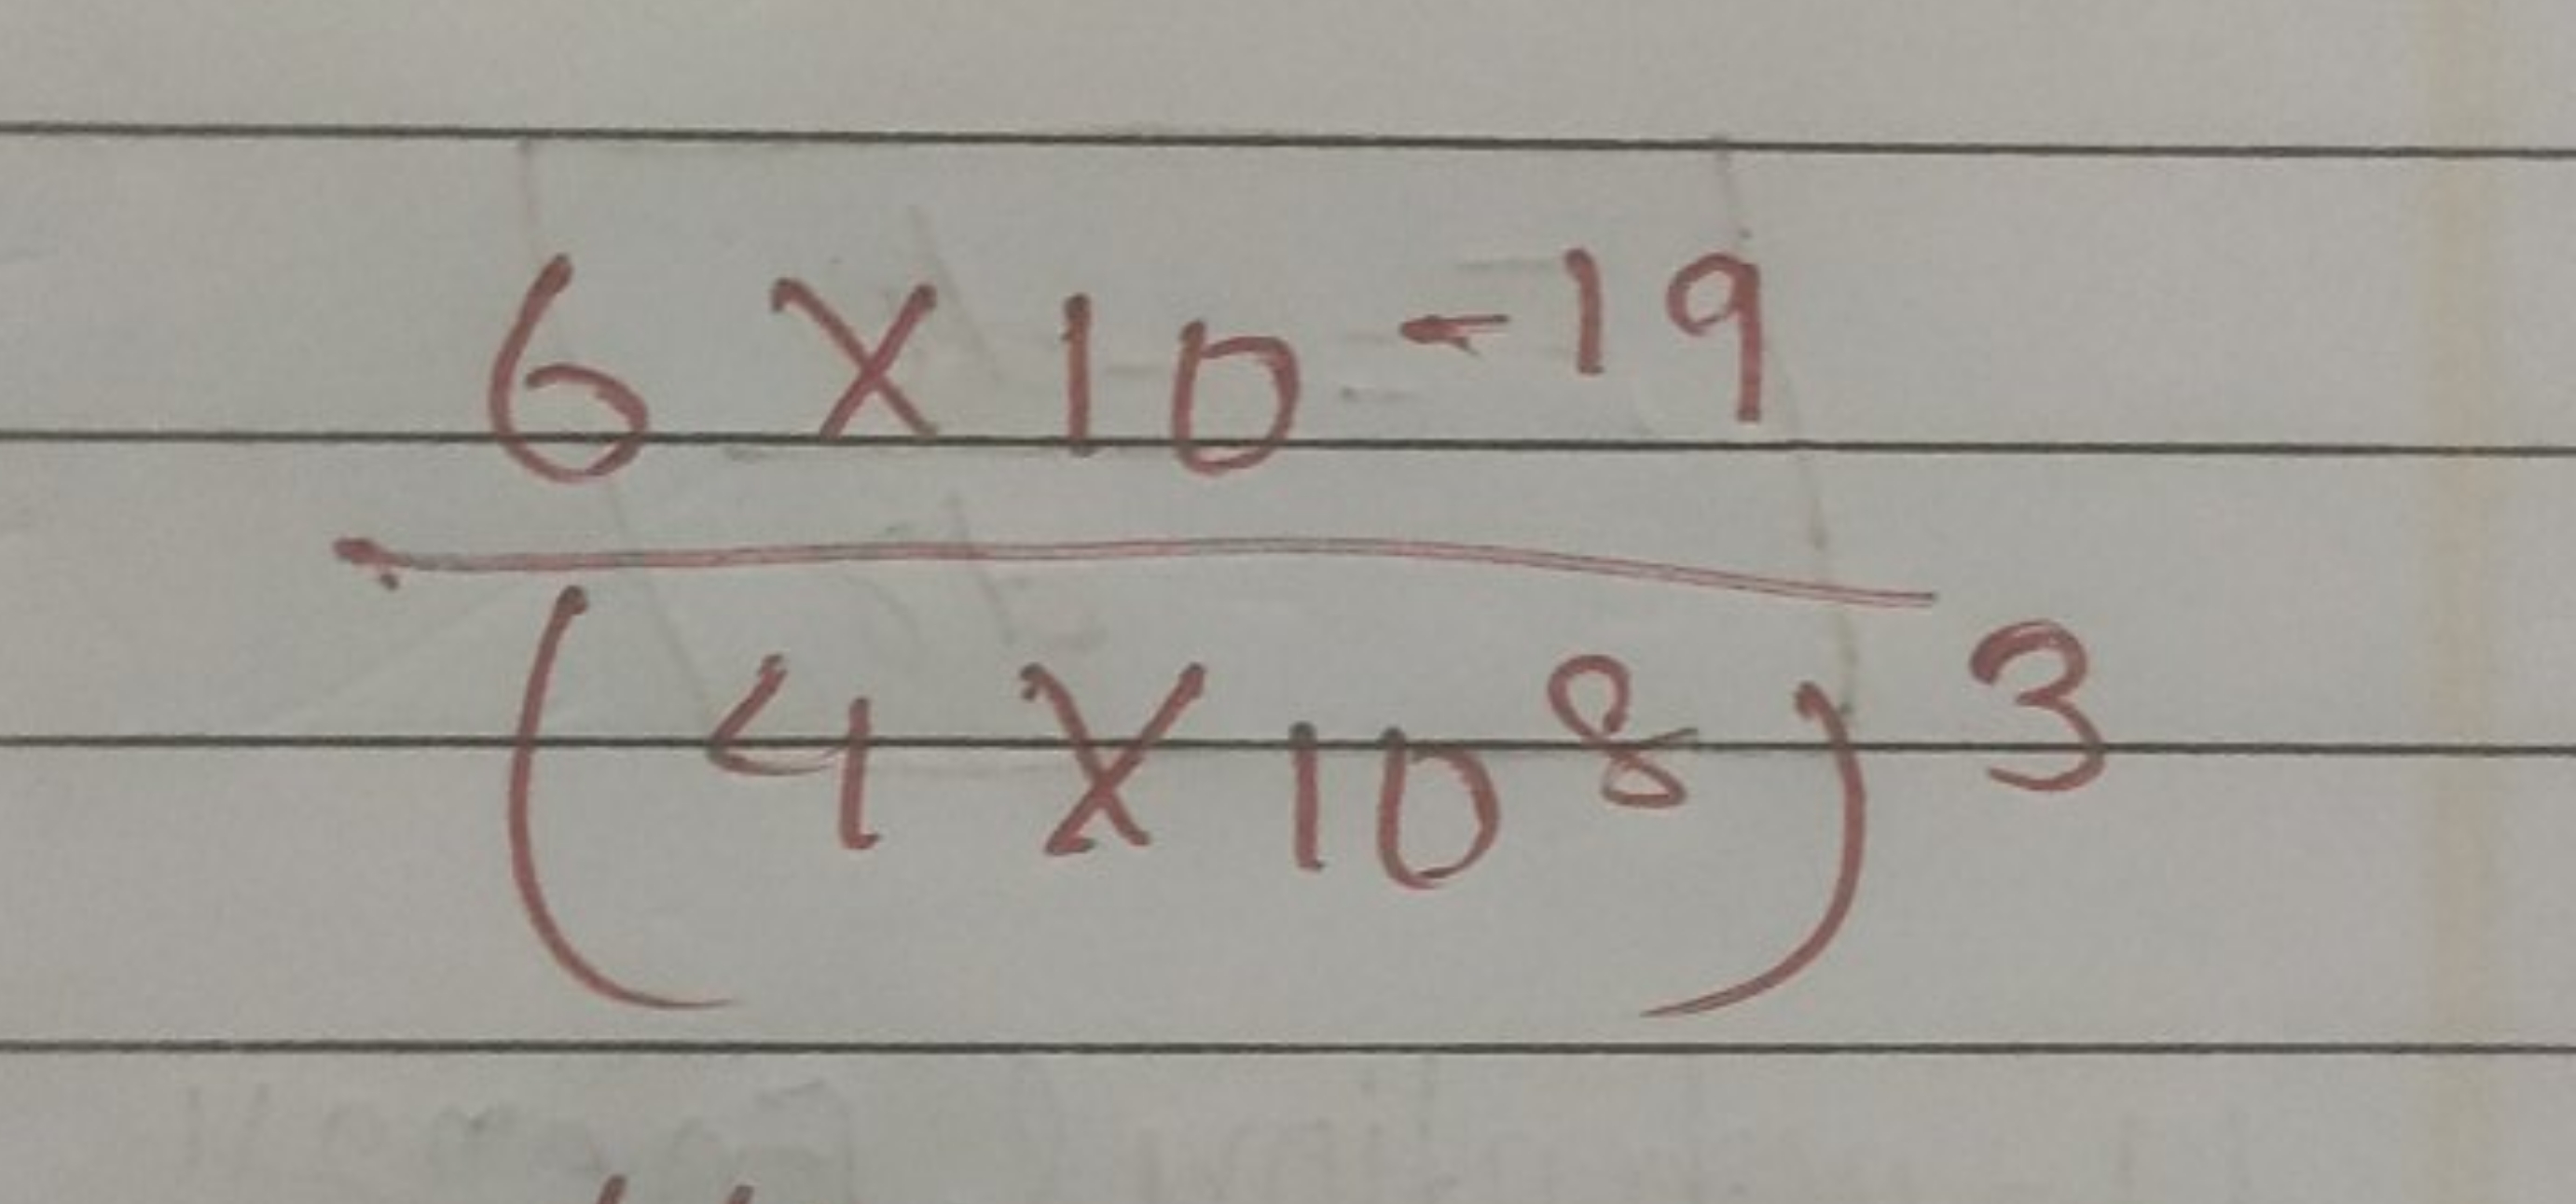 6 × 10⁻¹⁹
(4 × 10⁸)³